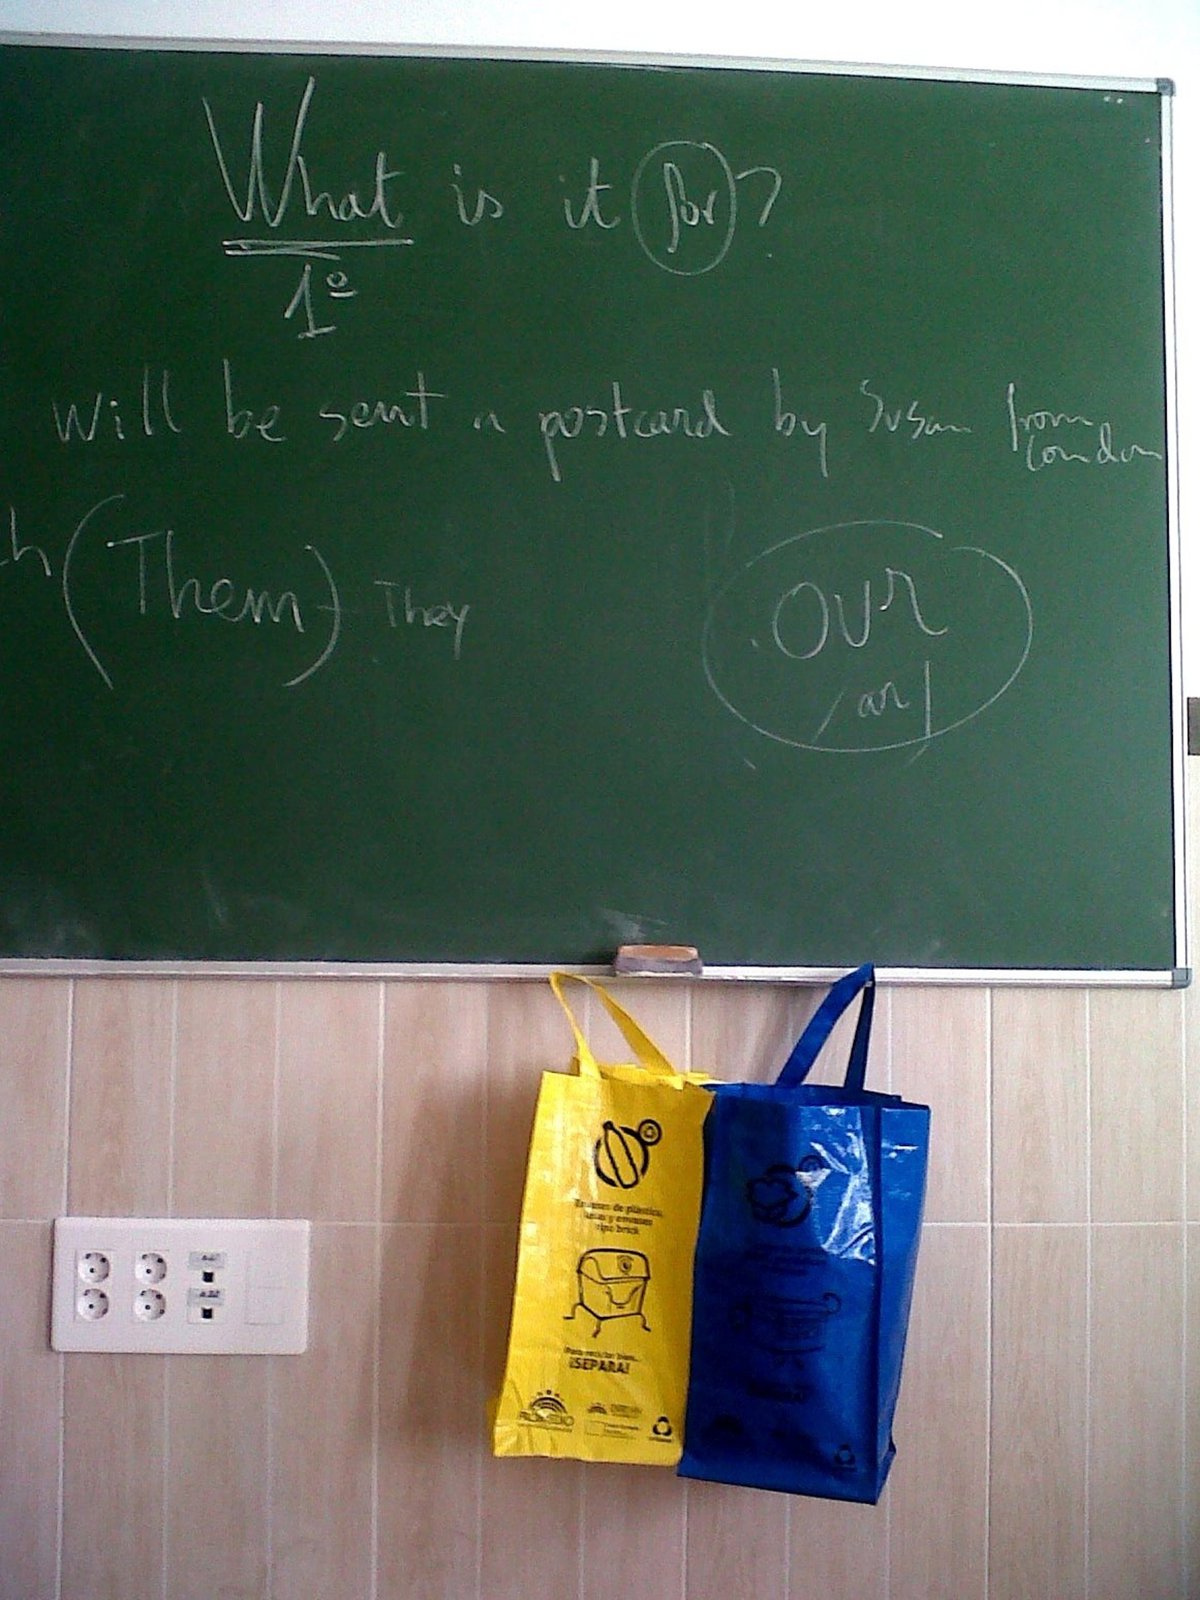 What is it for?
1º
will be sent a postcard by Susan from London
h (Them) They
OUR
/ar/
Envases de plástico,
latas y envases
tipo brick
Para reciclar bien...
¡SEPARA!